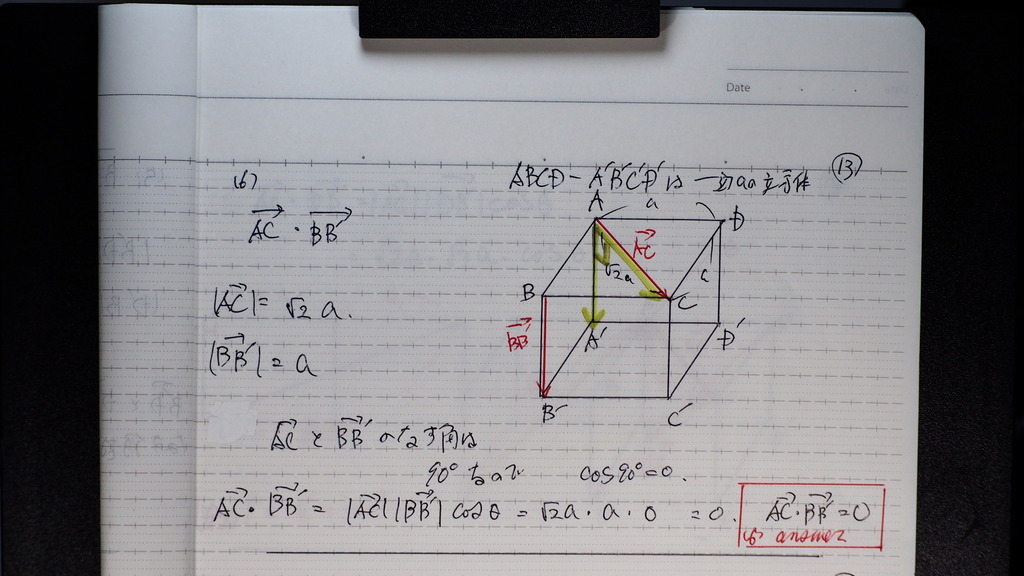 Date
⑬
ABCD-A'B'C'D'は 一辺aの立方体
(6)
$\overrightarrow{AC}$・$\overrightarrow{BB'}$
A a D
$\overrightarrow{AC}$
√2a a
B C
$\overrightarrow{BB'}$
A' D'
B' C'
|$\overrightarrow{AC}$| = √2 a.
|$\overrightarrow{BB'}$| = a
$\overrightarrow{AC}$ と $\overrightarrow{BB'}$ のなす角は
90° なので cos90°=0.
$\overrightarrow{AC}$・$\overrightarrow{BB'}$ = |$\overrightarrow{AC}$||$\overrightarrow{BB'}$| cosθ = √2a・a・0 = 0.
$\overrightarrow{AC}$・$\overrightarrow{BB'}$=0
(6) answer